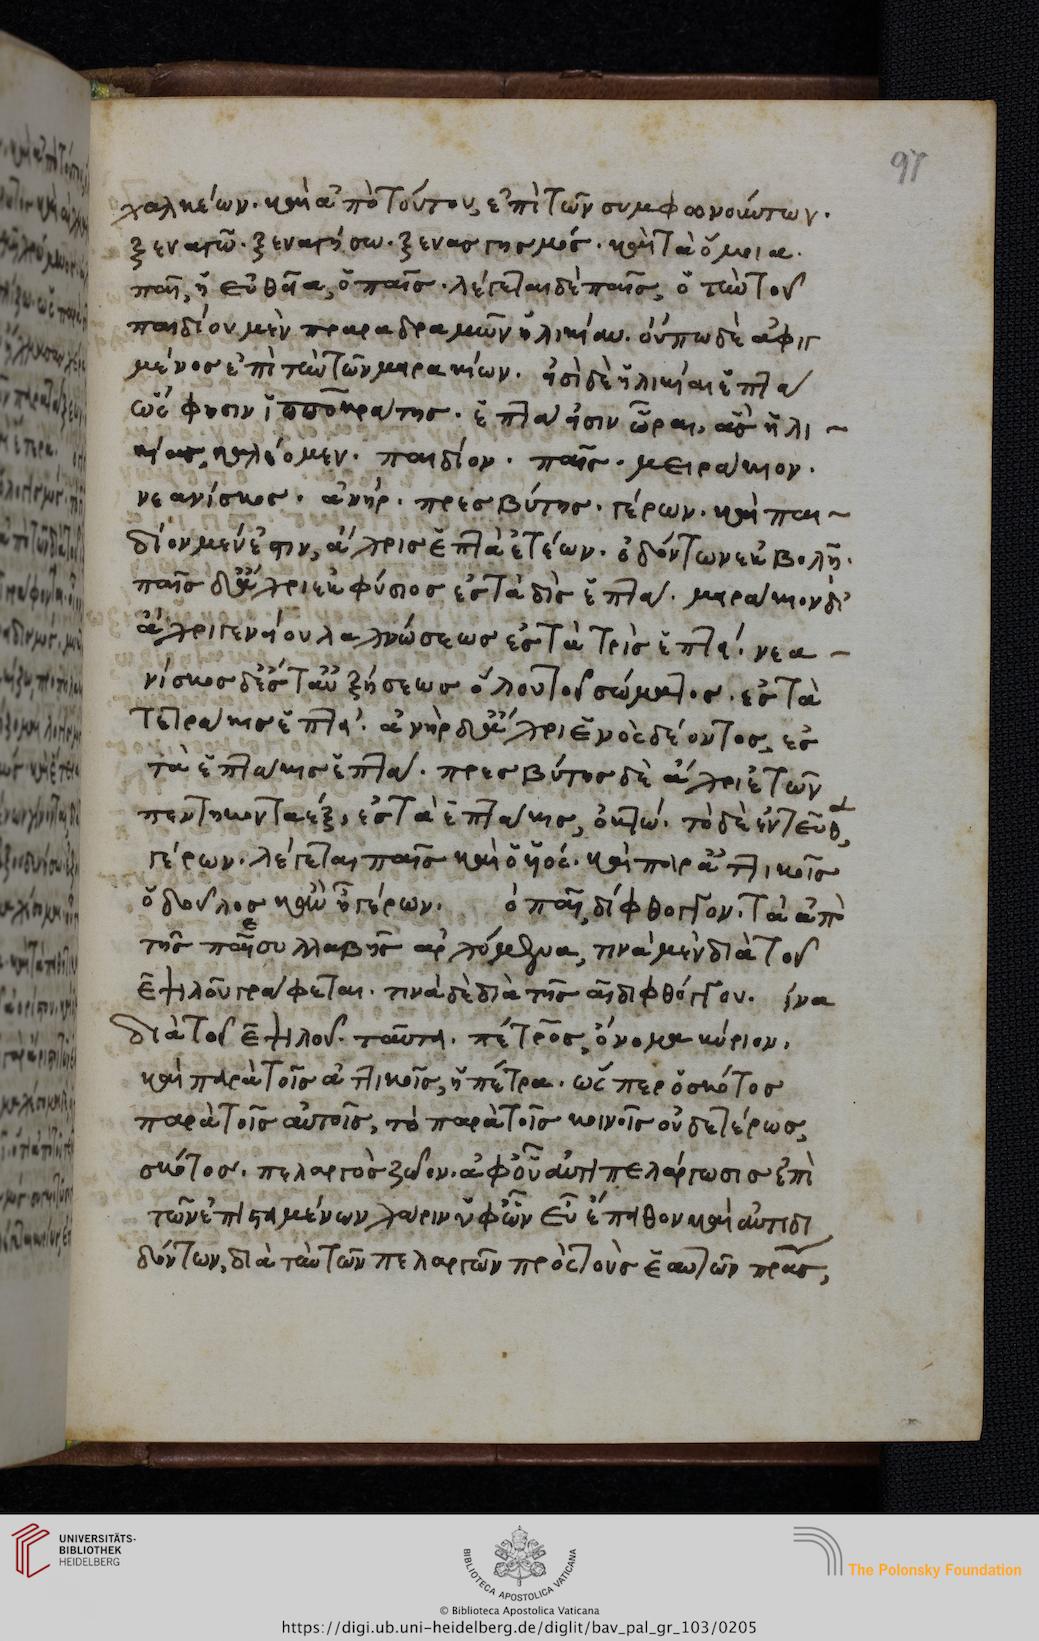 97
χαλκείων. καὶ ἀπὸ τούτου, ἐπὶ τῶν συμφωνούντων.
ξεναγῶ. ξεναγήσω. ξεναγησμός. καὶ τὰ ὅμοια.
παῖ, ἡ εὐθεῖα, ὁ παῖς. λέγεται δὲ παῖς, ὁ τὴν τοῦ
παιδίου μὲν παραδραμὼν ἡλικίαν. οὔπω δὲ ἀφιγ
μένος ἐπὶ τὴν τῶν μειρακίων. εἰσὶ δὲ ἡλικίαι ἑπτὰ
ὥς φησιν ἱπποκράτης. ἑπτά εἰσιν ὧραι, ἃς ἡλι
κίας καλέομεν. παιδίον. παῖς. μειράκιον.
νεανίσκος. ἀνήρ. πρεσβύτης. γέρων. καὶ παι
δίον μέν ἐστιν, ἄχρις ἑπτὰ ἐτέων. ὀδόντων ἐκβολῆ.
παῖς δ' ἄχρι ἐκφύσιος ἐς τὰ δὶς ἑπτά. μειράκιον δ'
ἄχρι γενείου λαχνώσεως ἐς τὰ τρὶς ἑπτά. νεα
νίσκος δ' ἐς τ' αὐξήσεως ὅλου τοῦ σώματος. ἐς τὰ
τετράκις ἑπτά. ἀνὴρ δ' ἄχρι ἑνὸς δέοντος, ἐς
τὰ ἑπτάκις ἑπτά. πρεσβύτης δὲ ἄχρι ἐτῶν
πεντήκοντα ἕξ, ἐς τὰ ἑπτάκις ὀκτώ. τὸ δὲ ἐντεῦθ,
γέρων. λέγεται παῖς καὶ ὁ υἱός. καὶ παρ' ἀττικοῖς
ὁ δοῦλος κἂν ᾖ γέρων. ὁ παῖ, δίφθογγον. τὰ ἀπὸ
τῆς παι συλλαβῆς ἀρχόμενα, τινὰ μὲν διὰ τοῦ
ε ψιλοῦ γράφεται. τινὰ δὲ διὰ τῆς αι διφθόγγου. ἵνα
διὰ τοῦ ε ψιλοῦ. ταῦτα. πέτρος, ὄνομα κύριον.
καὶ παρὰ τοῖς ἀττικοῖς, ἡ πέτρα. ὥς περ ὁ σκότος
παρὰ τοῖς αὐτοῖς, τὸ παρὰ τοῖς κοινοῖς οὐδετέρως,
σκότος. πελαργὸς ζῶον. ἀφ' οὗ ἀντιπελάργωσις ἐπὶ
τῶν ἐπισταμένων χάριν ὑφ' ὧν εὖ ἔπαθον καὶ ἀντιδι
δόντων, διὰ τὴν τῶν πελαργῶν πρὸς τοὺς ἑαυτῶν πρας,
UNIVERSITÄTS-
BIBLIOTHEK
HEIDELBERG
BIBLIOTECA APOSTOLICA VATICANA
The Polonsky Foundation
© Biblioteca Apostolica Vaticana
https://digi.ub.uni-heidelberg.de/diglit/bav_pal_gr_103/0205